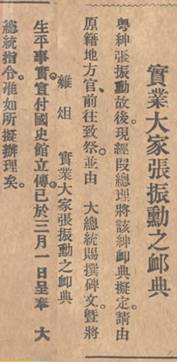 實業大家張振勳之卹典
粵紳張振勳故後現經段總理將該紳卹典擬定請由
原籍地方官前往致祭並由　大總統賜撰碑文暨將
雜俎　實業大家張振勳之卹典
生平事實宣付國史館立傳已於三月一日呈奉　大
總統指令准如所擬辦理矣